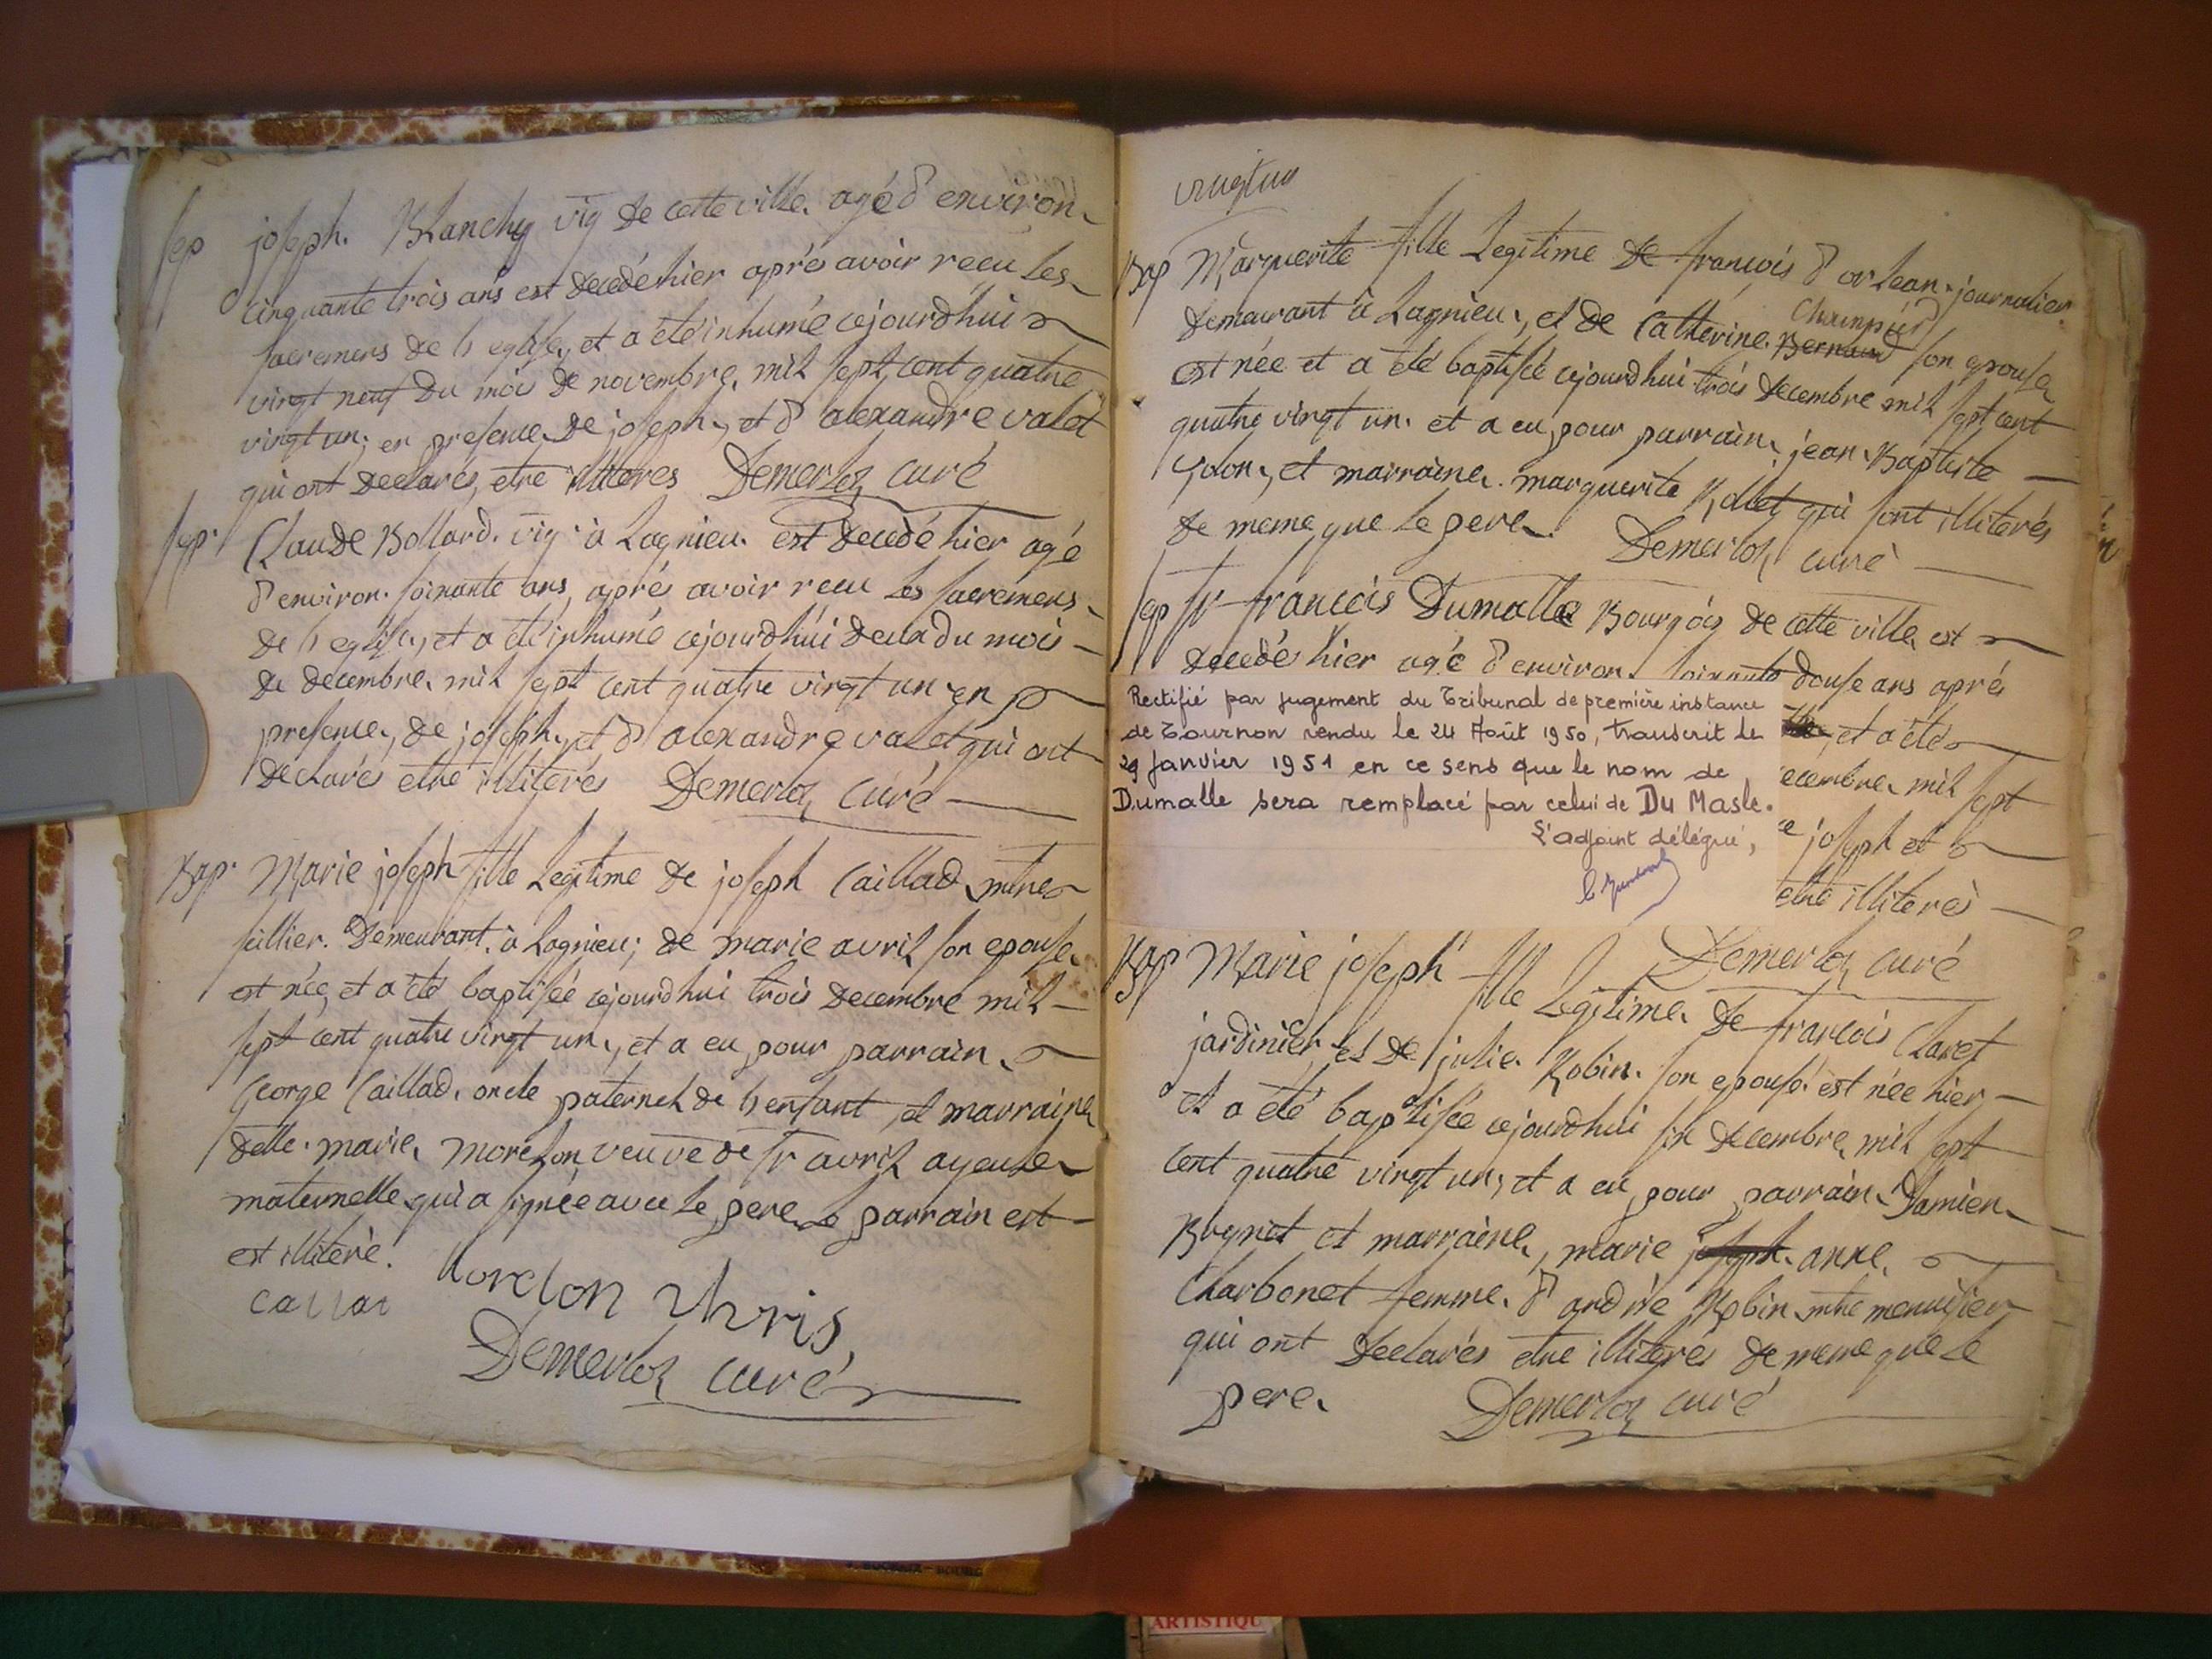 Sep joseph. Blanchy vig de cette ville agé d'environ
cinquante trois ans est decedé hier aprés avoir reçu les
sacremens de l'eglise, et a été inhumé cejourdhui
vingt neuf du mois de novembre mil sept cent quatre
vingt un; en presence de joseph, et d'alexandre valet
qui ont declarés etre illiteres Demerloz curé
Sep. Claude Bollard. vig. à Lagnieu. est decedé hier agé
d'environ soixante ans, aprés avoir reçu les sacremens
de l'eglise, et a été inhumé cejourdhui deux du mois
de decembre mil sept cent quatre vingt un en
presence, de joseph, et d'alexandre valet qui ont
declarés etre illiterés Demerloz curé
Bap. Marie joseph fille legitime de joseph Caillad mtre
sellier. Demeurant à Lagnieu; de marie avril son epouse
est née, et a été baptisée cejourdhui trois decembre mil
sept cent quatre vingt un, et a eu pour parrain
George Caillad, oncle paternel de l'enfant, et marraine
delle. marie morelon veuve de Sr avril ayeule
maternelle qui a signée avec le pere le parrain est
est illiteré.
Demerloz curé
vingt un
Bap Marguerite fille legitime de françois d'orlean journalier
Champier
demeurant à Lagnieu, et de Catherine Bernard son epouse
est née et a été baptisée cejourdhui trois decembre mil sept cent
quatre vingt un. et a eu pour parrain jean Baptiste
et marraine. marguerite qui sont illiterés
de meme que le pere. Demerloz curé
Sep Sr françois Dumalle Bourgois de cette ville est
decedé hier agé d'environ soixante douse ans aprés
Rectifié par jugement du Tribunal de première instance
de Tournon rendu le 24 Août 1950, transcrit le
29 Janvier 1951 en ce sens que le nom de
Dumalle sera remplacé par celui de Du Masle.
L'adjoint délégué,
et a été
ecembre mil sept
ce joseph et d
etre illiterés
Demerloz curé
Bap Marie joseph fille legitime de françois Claret
jardinier et de julie Robin son epouse est née hier
et a été baptisée cejourdhui six decembre mil sept
cent quatre vingt un, et a eu pour parrain Damien
Bugnet et marraine, marie joseph anne
Charbonet femme d'andrée Robin mtre menuisier
qui ont declarés etre illiterés de meme que le
pere. Demerloz curé
ARTISTIQU